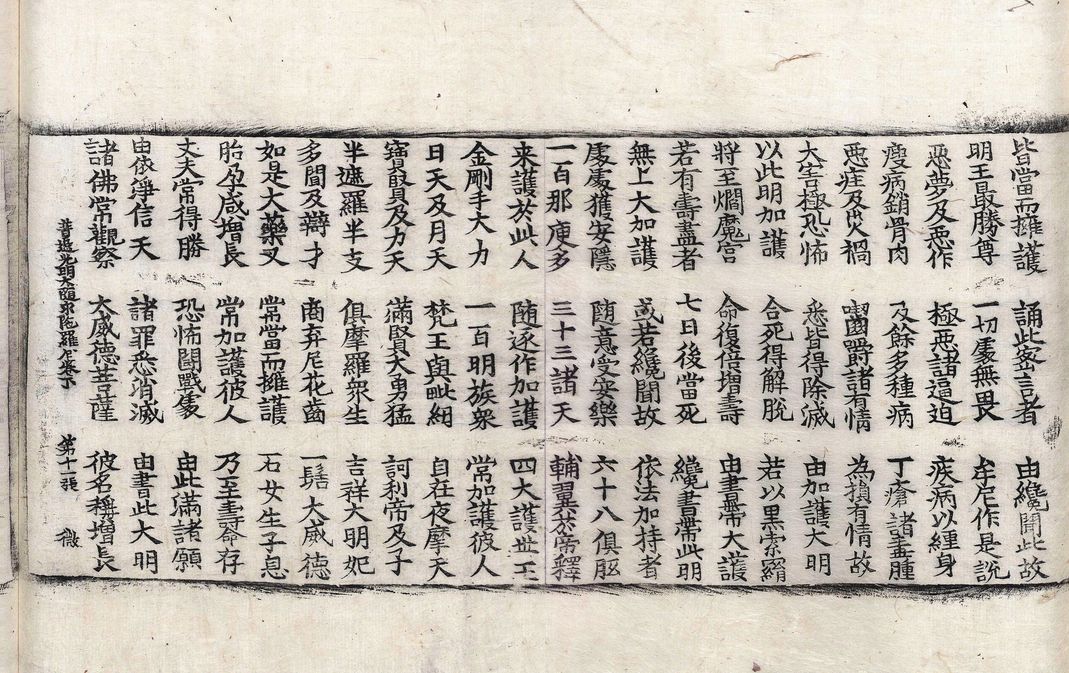 皆當而擁護 誦此密言者 由纔聞此故
明王最勝尊 一切處無畏 牟尼作是說
惡夢及惡作 極惡諸逼迫 疾病以纏身
瘦病銷骨肉 及餘多種病 丁瘡諸毒腫
惡疰及災禍 齧嚼諸有情 為損有情故
大害極恐怖 悉皆得除滅 由加護大明
以此明加護 合死得解脫 若以黑索羂
將至爓魔宮 命復倍增壽 由書帶大護
若有壽盡者 七日後當死 纔書帶此明
無上大加護 或若纔聞故 依法加持者
處處獲安隱 隨意受安樂 六十八俱胝
一百那庾多 三十三諸天 輔翼於帝釋
来護於此人 隨逐作加護 四大護世王
金剛手大力 一百明族眾 常加護彼人
日天及月天 梵王與毗紐 自在夜摩天
寶賢及力天 滿賢大勇猛 訶利帝及子
半遮羅半支 俱摩羅眾生 吉祥大明妃
多聞及辯才 商弃尼花齒 一髻大威德
如是大藥叉 常當而擁護 石女生子息
胎孕咸增長 常加護彼人 乃至壽命存
丈夫常得勝 恐怖鬪戰處 由此滿諸願
由依淨信天 諸罪悉消滅 由書此大明
諸佛常觀察 大威德菩薩 彼名稱增長
普遍光明大隨求陀羅尼卷下 第十一張 微